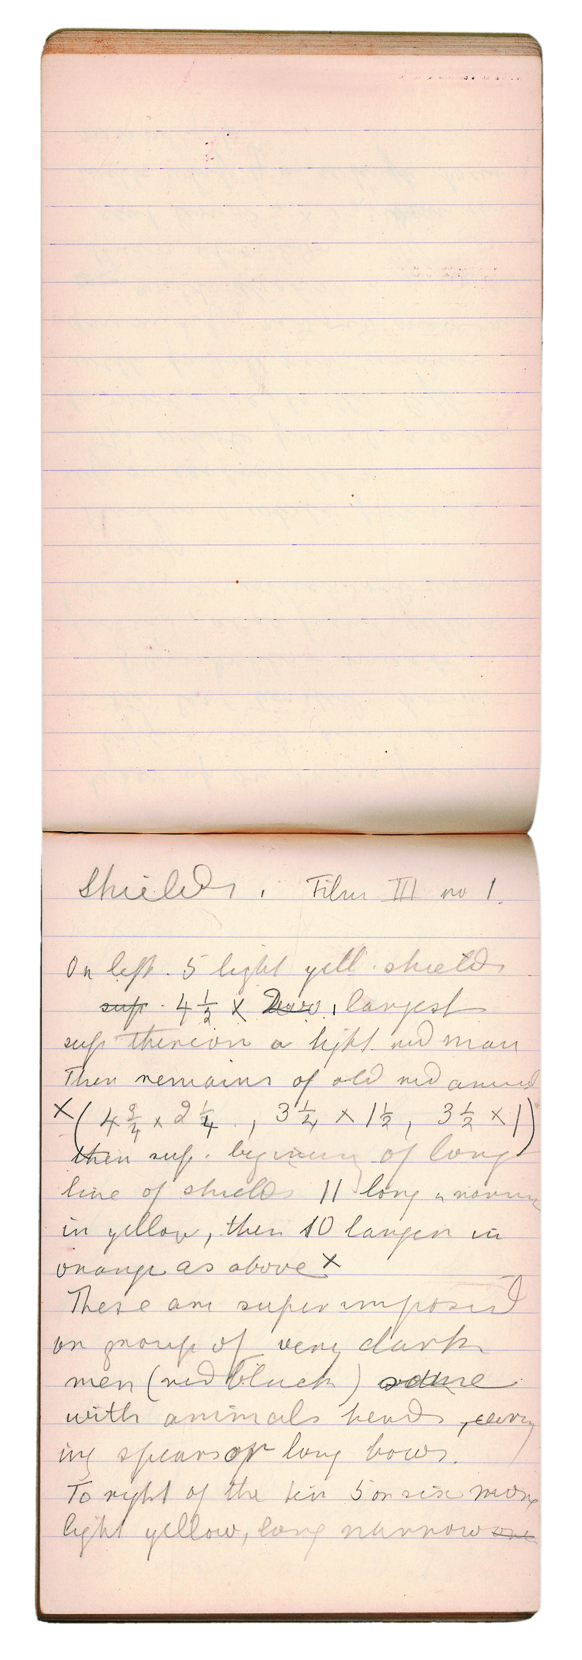 Shields. Film III no 1.
On left. 5 light yell. shields
sup. 4 1/2 x Two, largest
sup thereon a light red man
Then remains of old red animal
x ( 4 3/4 x 2 1/4, 3 1/4 x 1 1/2, 3 1/2 x 1)
then sup. beginning of long
line of shields 11 long & narrow
in yellow, then 10 larger in
orange as above x
These are superimposed
on group of very dark
men (red black) some
with animals heads, carry
ing spears or long bows.
To right of the ten 5 or six more
light yellow, long narrow one